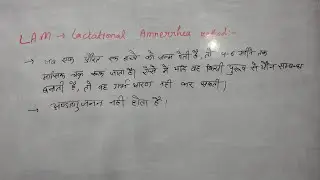 LAM → Lactational Amenorrhea method:-
→ जब एक औरत एक बच्चे को जन्म देती है, तो 4-6 महीने तक
मासिक चक्र रुक जाता है। ऐसे में यदि वह किसी पुरुष से यौन सम्बन्ध
बनाती है, तो वह गर्भ धारण नहीं कर सकती।
→ अण्डाणुजनन नहीं होता है।